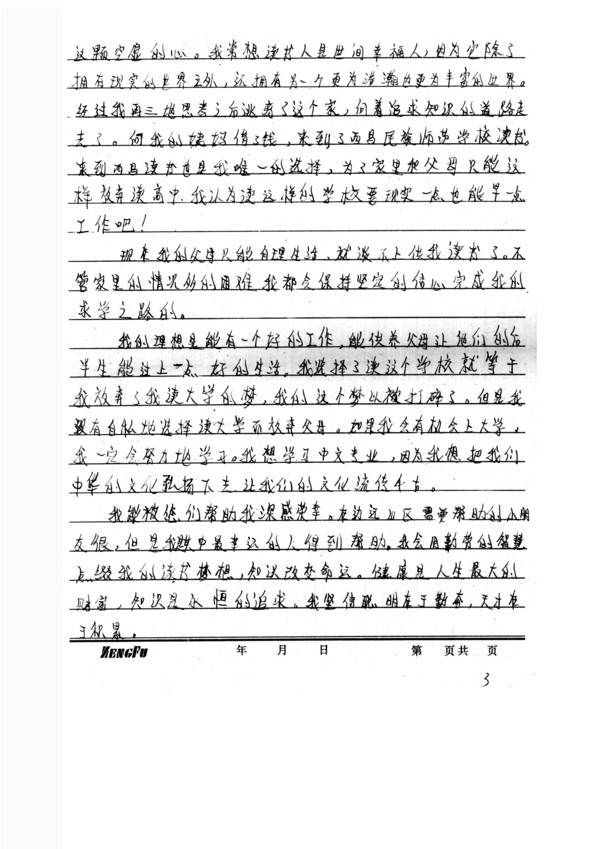 这颗空虚的心。我常想读书人是世间幸福人,因为它除了
拥有现实的世界之外,还拥有另一个更为浩瀚也更为丰富的世界。
经过我再三地思考之后逃离了这个家,向着追求知识的道路走
去了。向我的姨妈借了钱,来到了西昌民族师范学校读书。
来到西昌读书也是我唯一的选择,为了家里和父母只能这
样放弃读高中。我认为读这样的学校要现实一点也能早一点
工作吧!
现在我的父母只能自理生活,就谈不上供我读书了。不
管家里的情况多的困难我都会保持坚定的信心完成我的
求学之路的。
我的理想是能有一个好的工作,能供养父母让他们的后
半生能过上一点好的生活。我选择了读这个学校就等于
我放弃了我读大学的梦,我的这个梦以被打碎了。但是我
没有自私地选择读大学而放弃父母。如果我会有机会上大学。
我一定会努力地学习。我想学习中文专业,因为我想把我们
中华的文化弘扬下去让我们的文化流传千古。
我能被您们帮助我深感荣幸。在边远山区需要帮助的小朋
友很,但是我其中最幸运的人得到帮助。我会用勤劳的智慧
点缀我的读书梦想,知识改变命运。健康是人生最大的
财富,知识是永恒的追求。我坚信聪明在于勤奋,天才在
于积累。
ZENGFU 年 月 日 第 页共 页
3